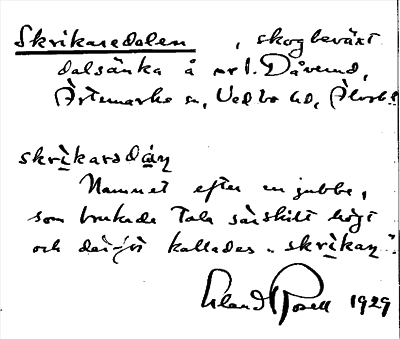 Skrikaredalen, skogbeväxt
dalsänka å nr 1. Dåverud,
Ärtemarks sn, Vedbo hd, Älvsb.
skrìkarədáɳ
Namnet efter en gubbe,
som brukade tala särskilt högt
och därför kallades "skrìkaɳ".
Erland Rosell 1929